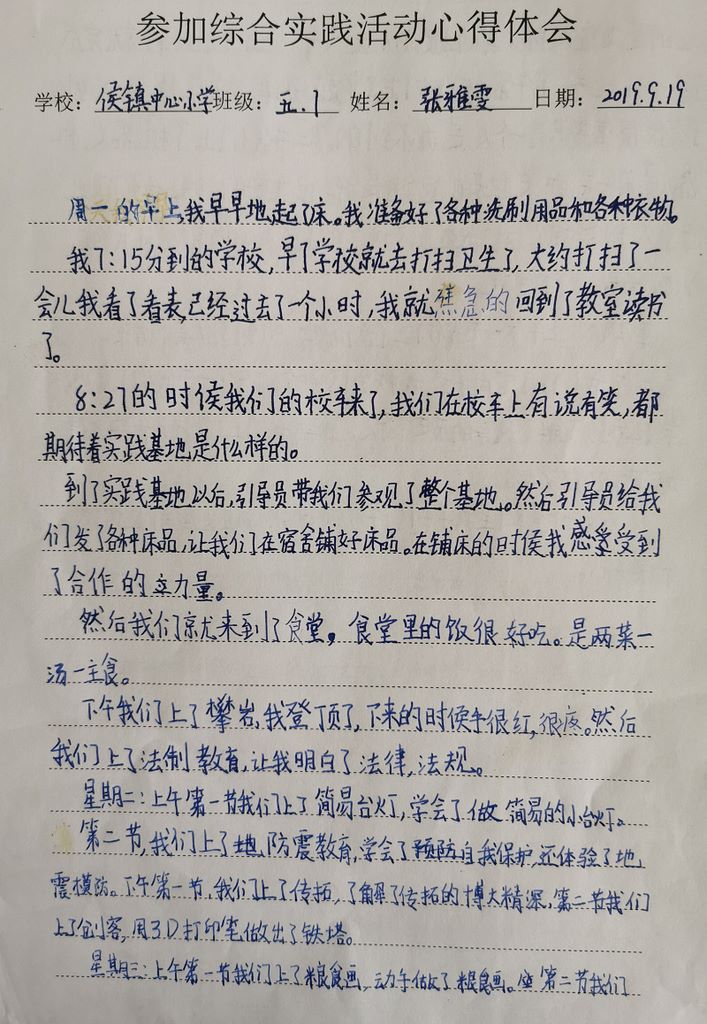 参加综合实践活动心得体会
学校：侯镇中心小学班级：五.1 姓名：张雅雯 日期：2019.9.19
周一的早上,我早早地起了床。我准备好了各种洗刷用品和各种衣物。
我7:15分到的学校,早了学校就去打扫卫生了,大约打扫了一
会儿我看了看表,已经过去了一个小时,我就焦急的回到了教室读书
了。
8:27的时侯我们的校车来了,我们在校车上有说有笑,都
期待着实践基地是什么样的。
到了实践基地以后,引导员带我们参观了整个基地。然后引导员给我
们发了各种床品,让我们在宿舍铺好床品。在铺床的时侯我感爱受到
了合作的力量。
然后我们就来到了食堂。食堂里的饭很好吃。是两菜一
汤一主食。
下午我们上了攀岩,我登顶了,下来的时侯手很红,很疼。然后
我们上了法制教育,让我明白了法律,法规。
星期二:上午第一节我们上了简易台灯,学会了做简易的小台灯。
第二节,我们上了地防震教育,学会了预防自我保护,还体验了地
震模防。下午第一节,我们上了传拓,了解了传拓的博大精深,第二节我们
上了创客,用3D打印笔做出了铁塔。
星期三:上午第一节我们上了粮食画,动手做了粮食画。第二节我们